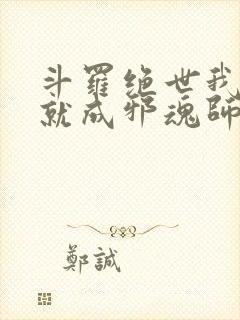 斗羅絕世我
就成邪魂師
鄭誠